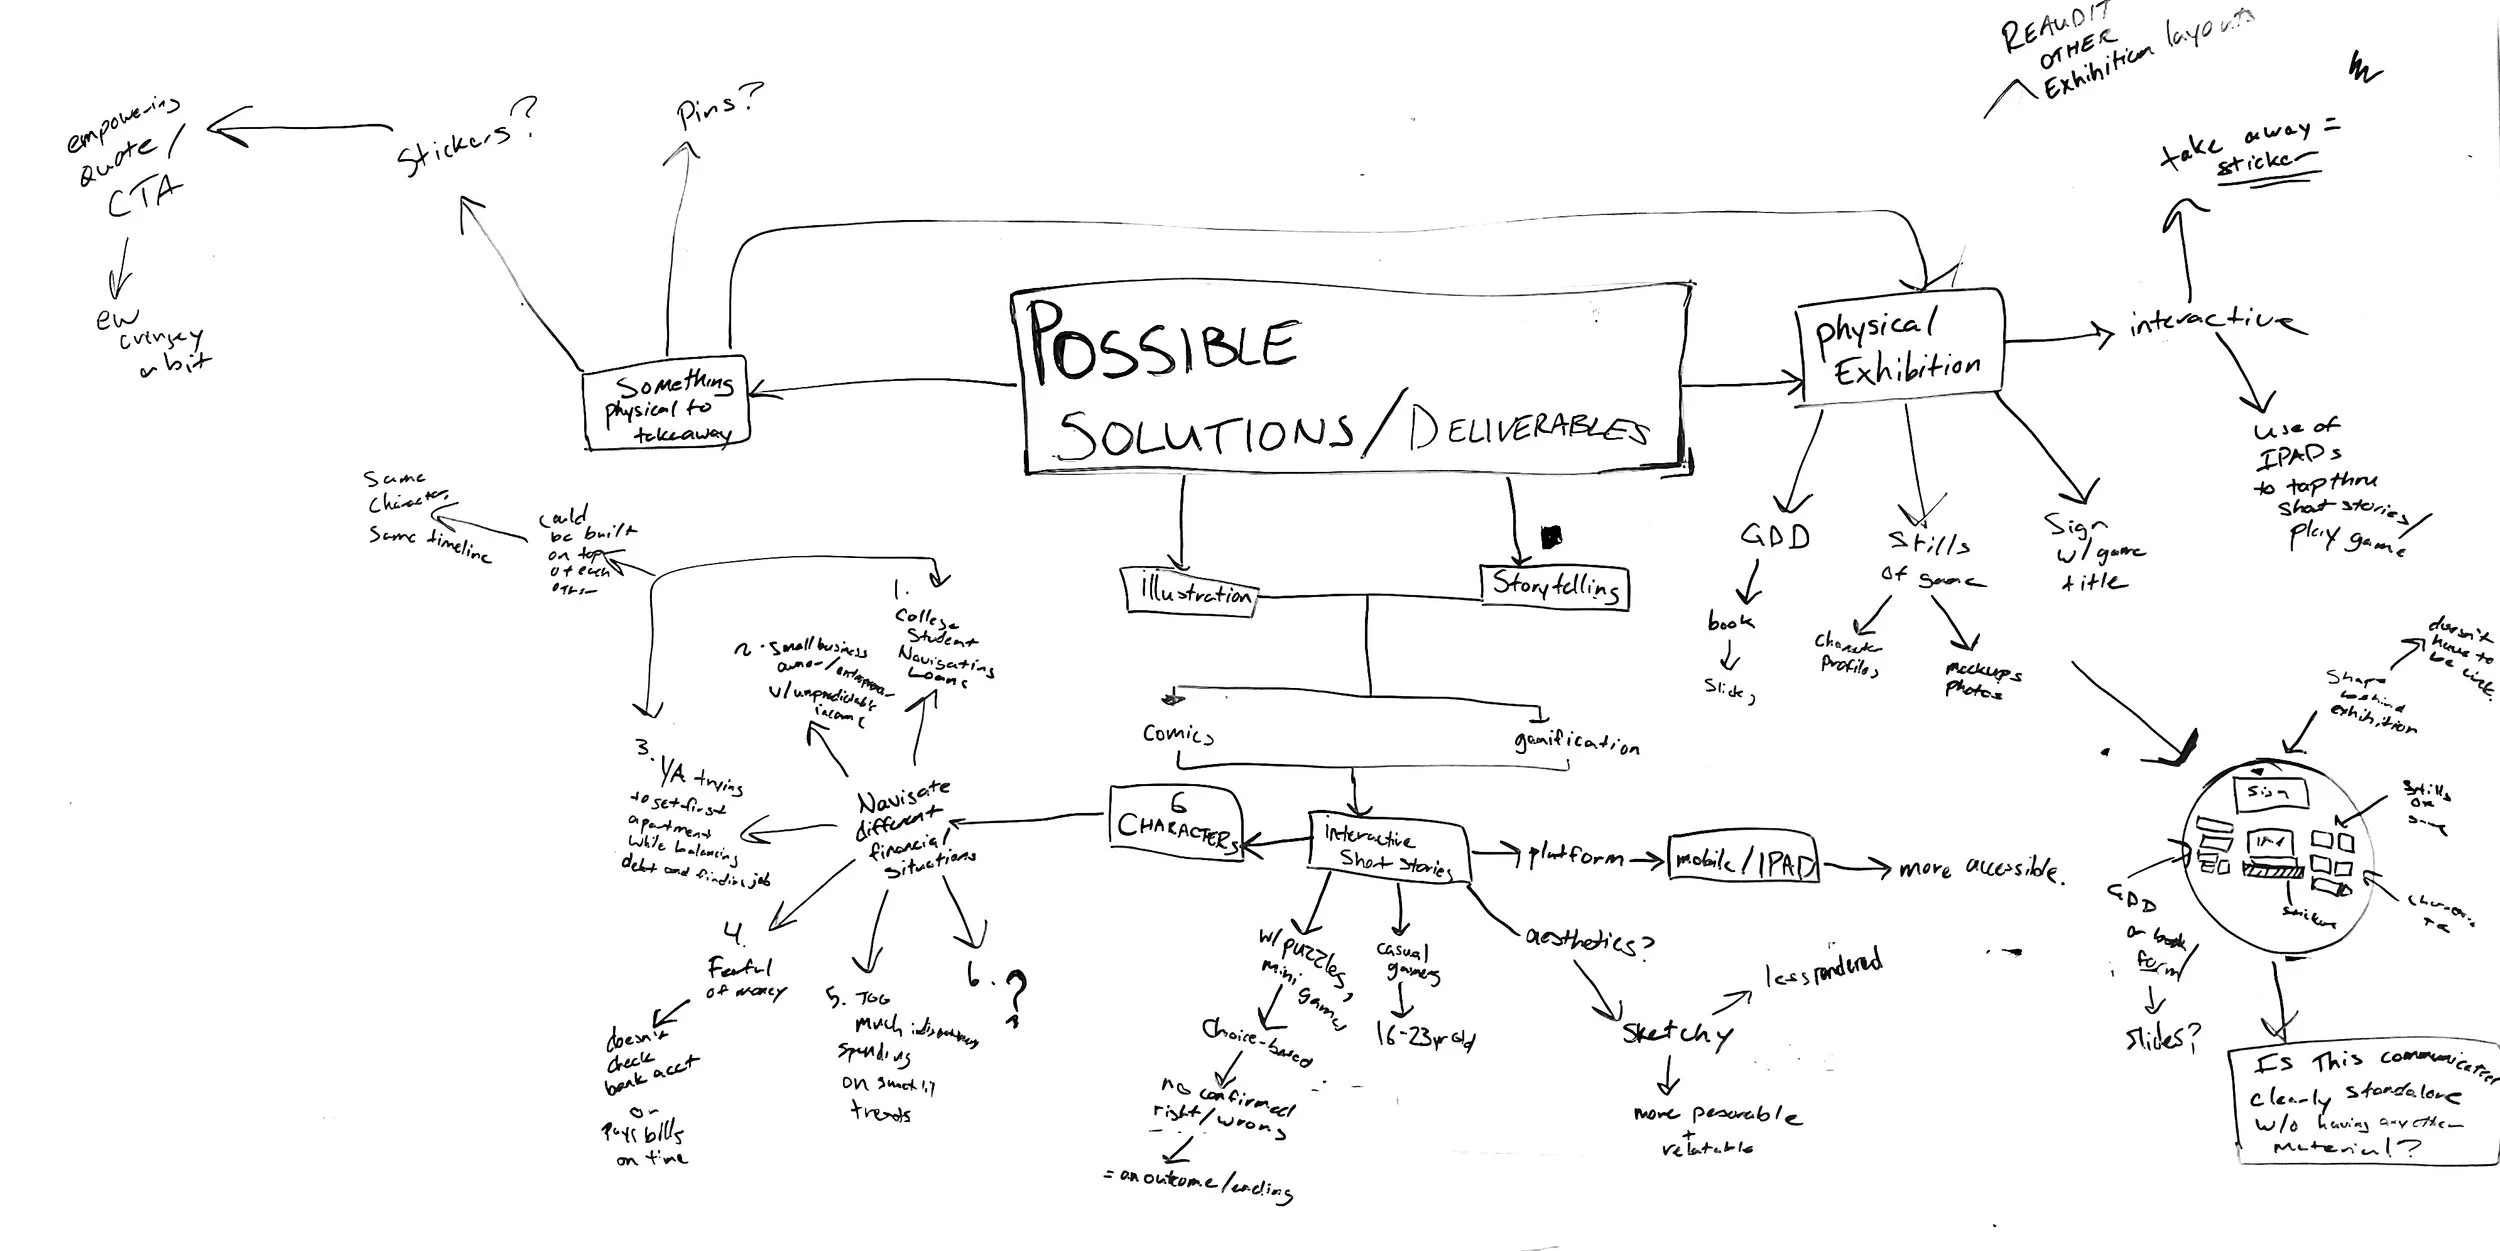 REAUDIT
OTHER
Exhibition layouts
take away =
sticker
Pins?
Stickers?
empowering
quote/
CTA
ew
cringey
a bit
POSSIBLE
SOLUTIONS/DELIVERABLES
Something
physical to
takeaway
physical
Exhibition
interactive
use of
IPADs
to tap thru
short stories/
play game
GDD
book
slides
Stills
of game
Character
Profiles
mockups
photos
Sign
w/ game
title
illustration
Storytelling
Comics
gamification
interactive
Short stories
6
CHARACTERS
Navigate
different
financial
situations
1.
College
Student
Navigating
Loans
2. Small business
owner/
w/unpredictable
income
3.
YA trying
to get first
apartment
while balancing
debt and finding job
4.
Fearful
of money
doesn't
check
bank acct
or
pays bills
on time
5. TOO
much
spending
on
trends
6. ?
could
be built
on top
of each
other
Same
Character,
Same timeline
platform
mobile/IPAD
more accessible.
w/ puzzles,
mini
games
Choice-based
no confirmed
right/wrong
= an outcome/ending
casual
gamers
16-23 yr old
aesthetics?
sketchy
less rendered
more personable
+
relatable
doesn't
have to
be circle
Shape
behind
exhibition
Sign
sticker
Stills
GDD
or book
form/
slides?
Is This communicated
clearly standalone
w/o having any other
material?